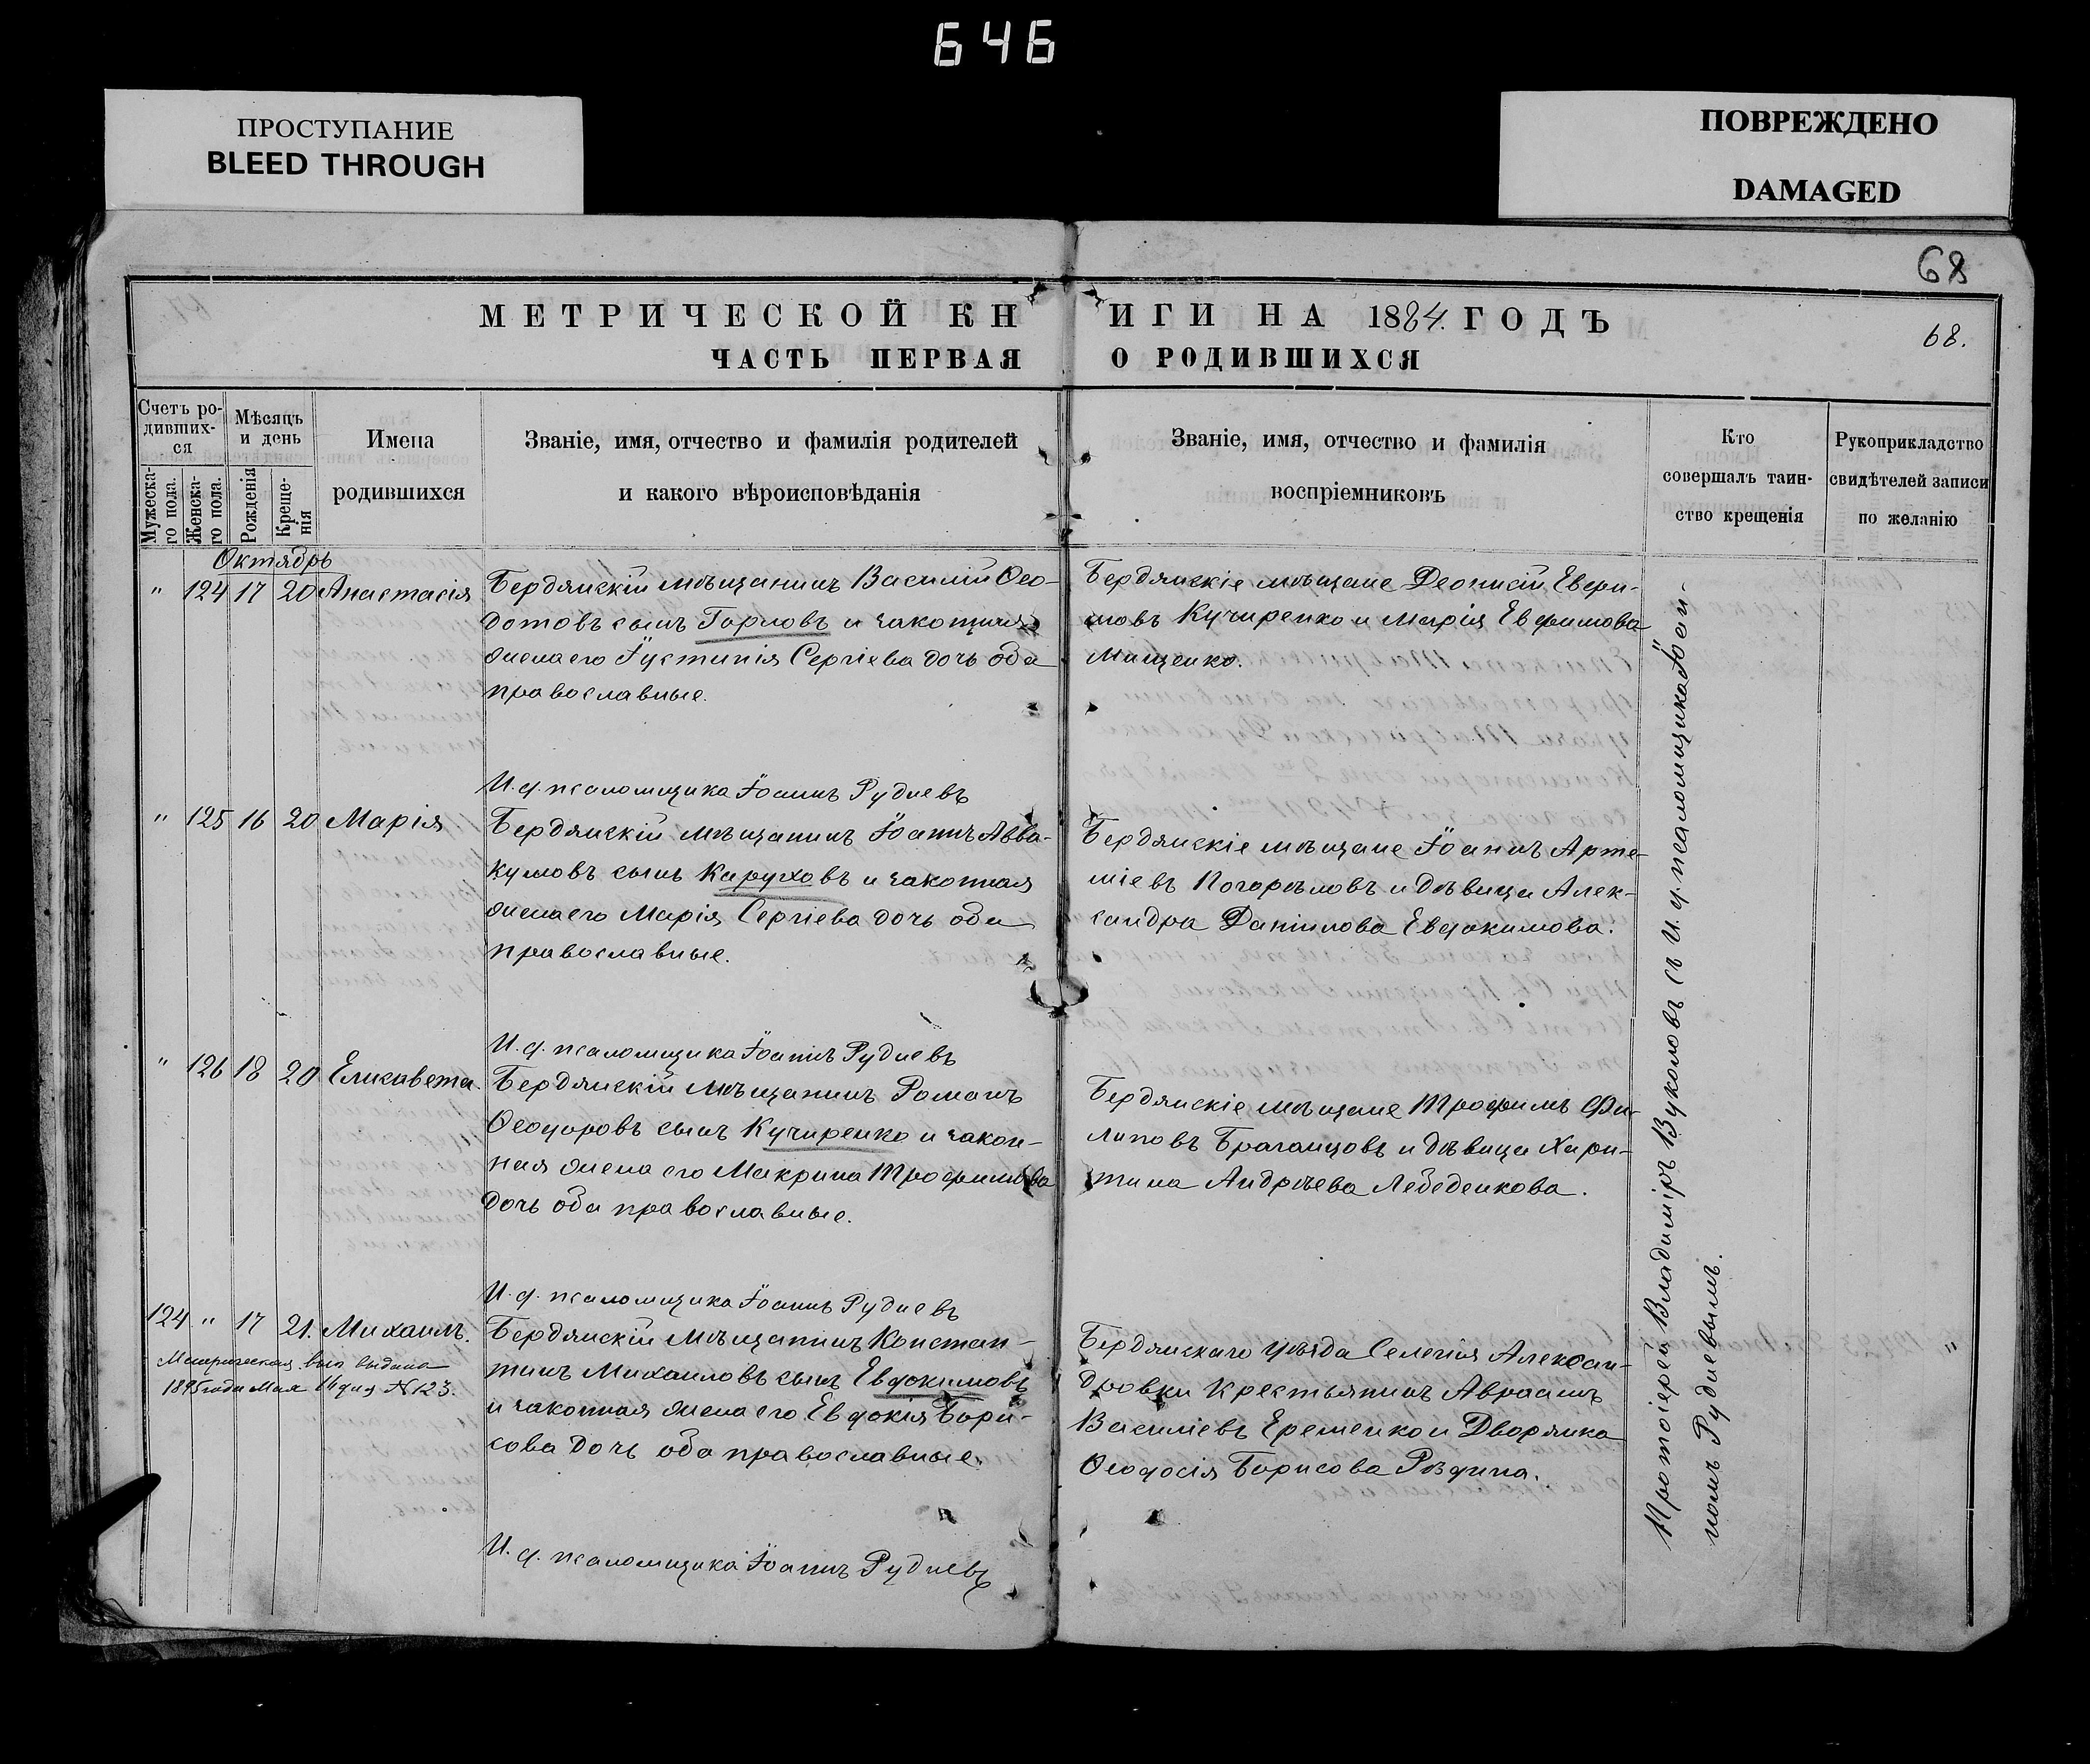 646
ПРОСТУПАНИЕ
BLEED THROUGH
ПОВРЕЖДЕНО
DAMAGED
68
МЕТРИЧЕСКОЙ КНИГИ НА 1884. ГОДЪ
68.
ЧАСТЬ ПЕРВАЯ О РОДИВШИХСЯ
Счетъ ро-
дивших-
ся
Мужеска-
го пола.
Женска-
го пола.
Мѣсяцъ
и день
Рожденія
Креще-
нія
Имена
родившихся
Званіе, имя, отчество и фамилія родителей
и какого вѣроисповѣданія
Званіе, имя, отчество и фамилія
воспріемниковъ
Кто
совершалъ таин-
ство крещенія
Рукоприкладство
свидѣтелей записи
по желанію
Октябрь
" 124 17 20 Анастасія
Бердянскій мѣщанинъ Василій Ѳео-
дотовъ сынъ Горловъ и законная
жена его Іустинія Сергіева дочь оба
православные.
Бердянскіе мѣщане Діонисій Евфи-
мовъ Кучиренко и Марія Евфимова
Мищенко.
И. д. псаломщика Іоаннъ Рудневъ
" 125 16 20 Марія
Бердянскій мѣщанинъ Іоаннъ Авва-
кумовъ сынъ Каруховъ и законная
жена его Марія Сергіева дочь оба
православные.
Бердянскіе мѣщане Іоаннъ Арте-
міевъ Погорѣловъ и дѣвица Алек-
сандра Даніилова Евдокимова.
И. д. псаломщика Іоаннъ Рудневъ
" 126 18 20 Елисавета.
Бердянскій мѣщанинъ Романъ
Ѳеодоровъ сынъ Кучиренко и закон-
ная жена его Макрина Трофимова
дочь оба православные.
Бердянскіе мѣщане Трофимъ Фи-
липовъ Браганцовъ и дѣвица Хари-
тина Андреева Лебеденкова.
И. д. псаломщика Іоаннъ Рудневъ
124 " 17 21. Михаилъ.
Метрическая вып. выдана
1895 года Мая 14 дня № 123.
Бердянскій мѣщанинъ Констан-
тинъ Михаиловъ сынъ Евдокимовъ
и законная жена его Евдокія Бори-
сова дочь оба православные.
Бердянскаго уѣзда Селенія Алексан-
дровки крестьянинъ Авраамъ
Василіевъ Еременко и Дворянка
Ѳеодосія Борисова
И. д. псаломщика Іоаннъ Рудневъ
Протоіерей Владиміръ Вуколовъ съ И. д. псаломщика Іоан-
номъ Рудневымъ.
"